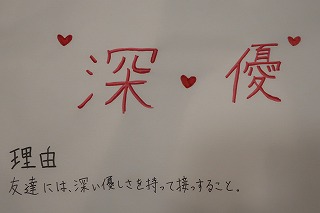 深・優
理由
友達には、深い優しさを持って接っすること。